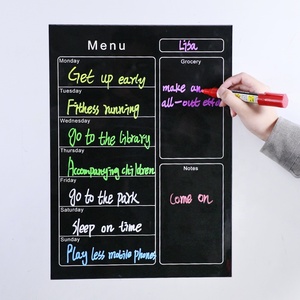 Menu
Lisa
Monday
Get up early
Tuesday
Fitness running
Wednesday
go to the library
Thursday
Accompanying children
Friday
go to the park
Saturday
sleep on time
Sunday
Play less mobile phones
Grocery
make an
all-out
Notes
come on